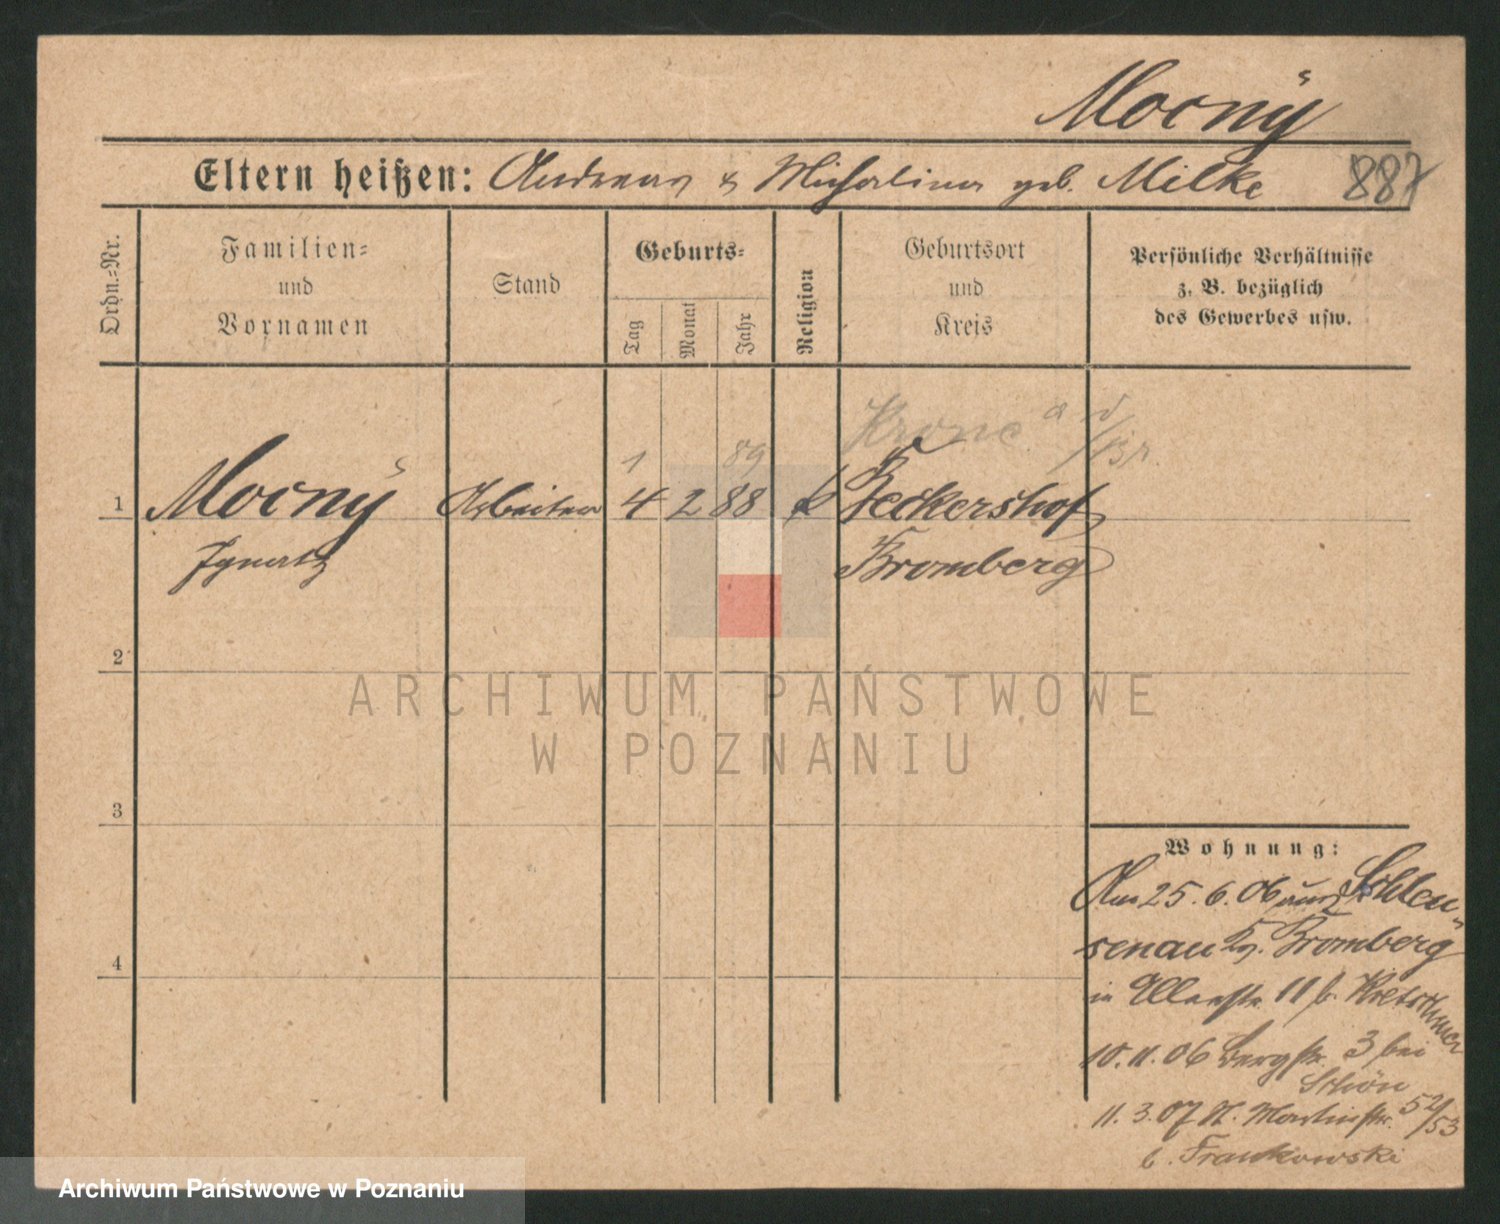 Mocný
Eltern heißen: Andreas & Michalina geb. Milke
887
Ordn.-Nr.
Familien-
und
Vornamen
Stand
Geburts-
Tag
Monat
Jahr
Religion
Geburtsort
und
Kreis
Persönliche Verhältnisse
z. B. bezüglich
des Gewerbes usw.
Krone a d/Br.
1 89
1 Mocný Arbeiter 4 2 88 k Beckershof
Ignatz Bromberg
2
3
4
ARCHIWUM PAŃSTWOWE
W POZNANIU
Wohnung:
Am 25. 6. 06 aus Schleu-
senau Kr. Bromberg
in 11 b. Kretschmer
10. 11. 06 Bergstr. 3 bei
Schön
11. 3. 07 St. Martinstr. 52/53
b. Frankowski
Archiwum Państwowe w Poznaniu